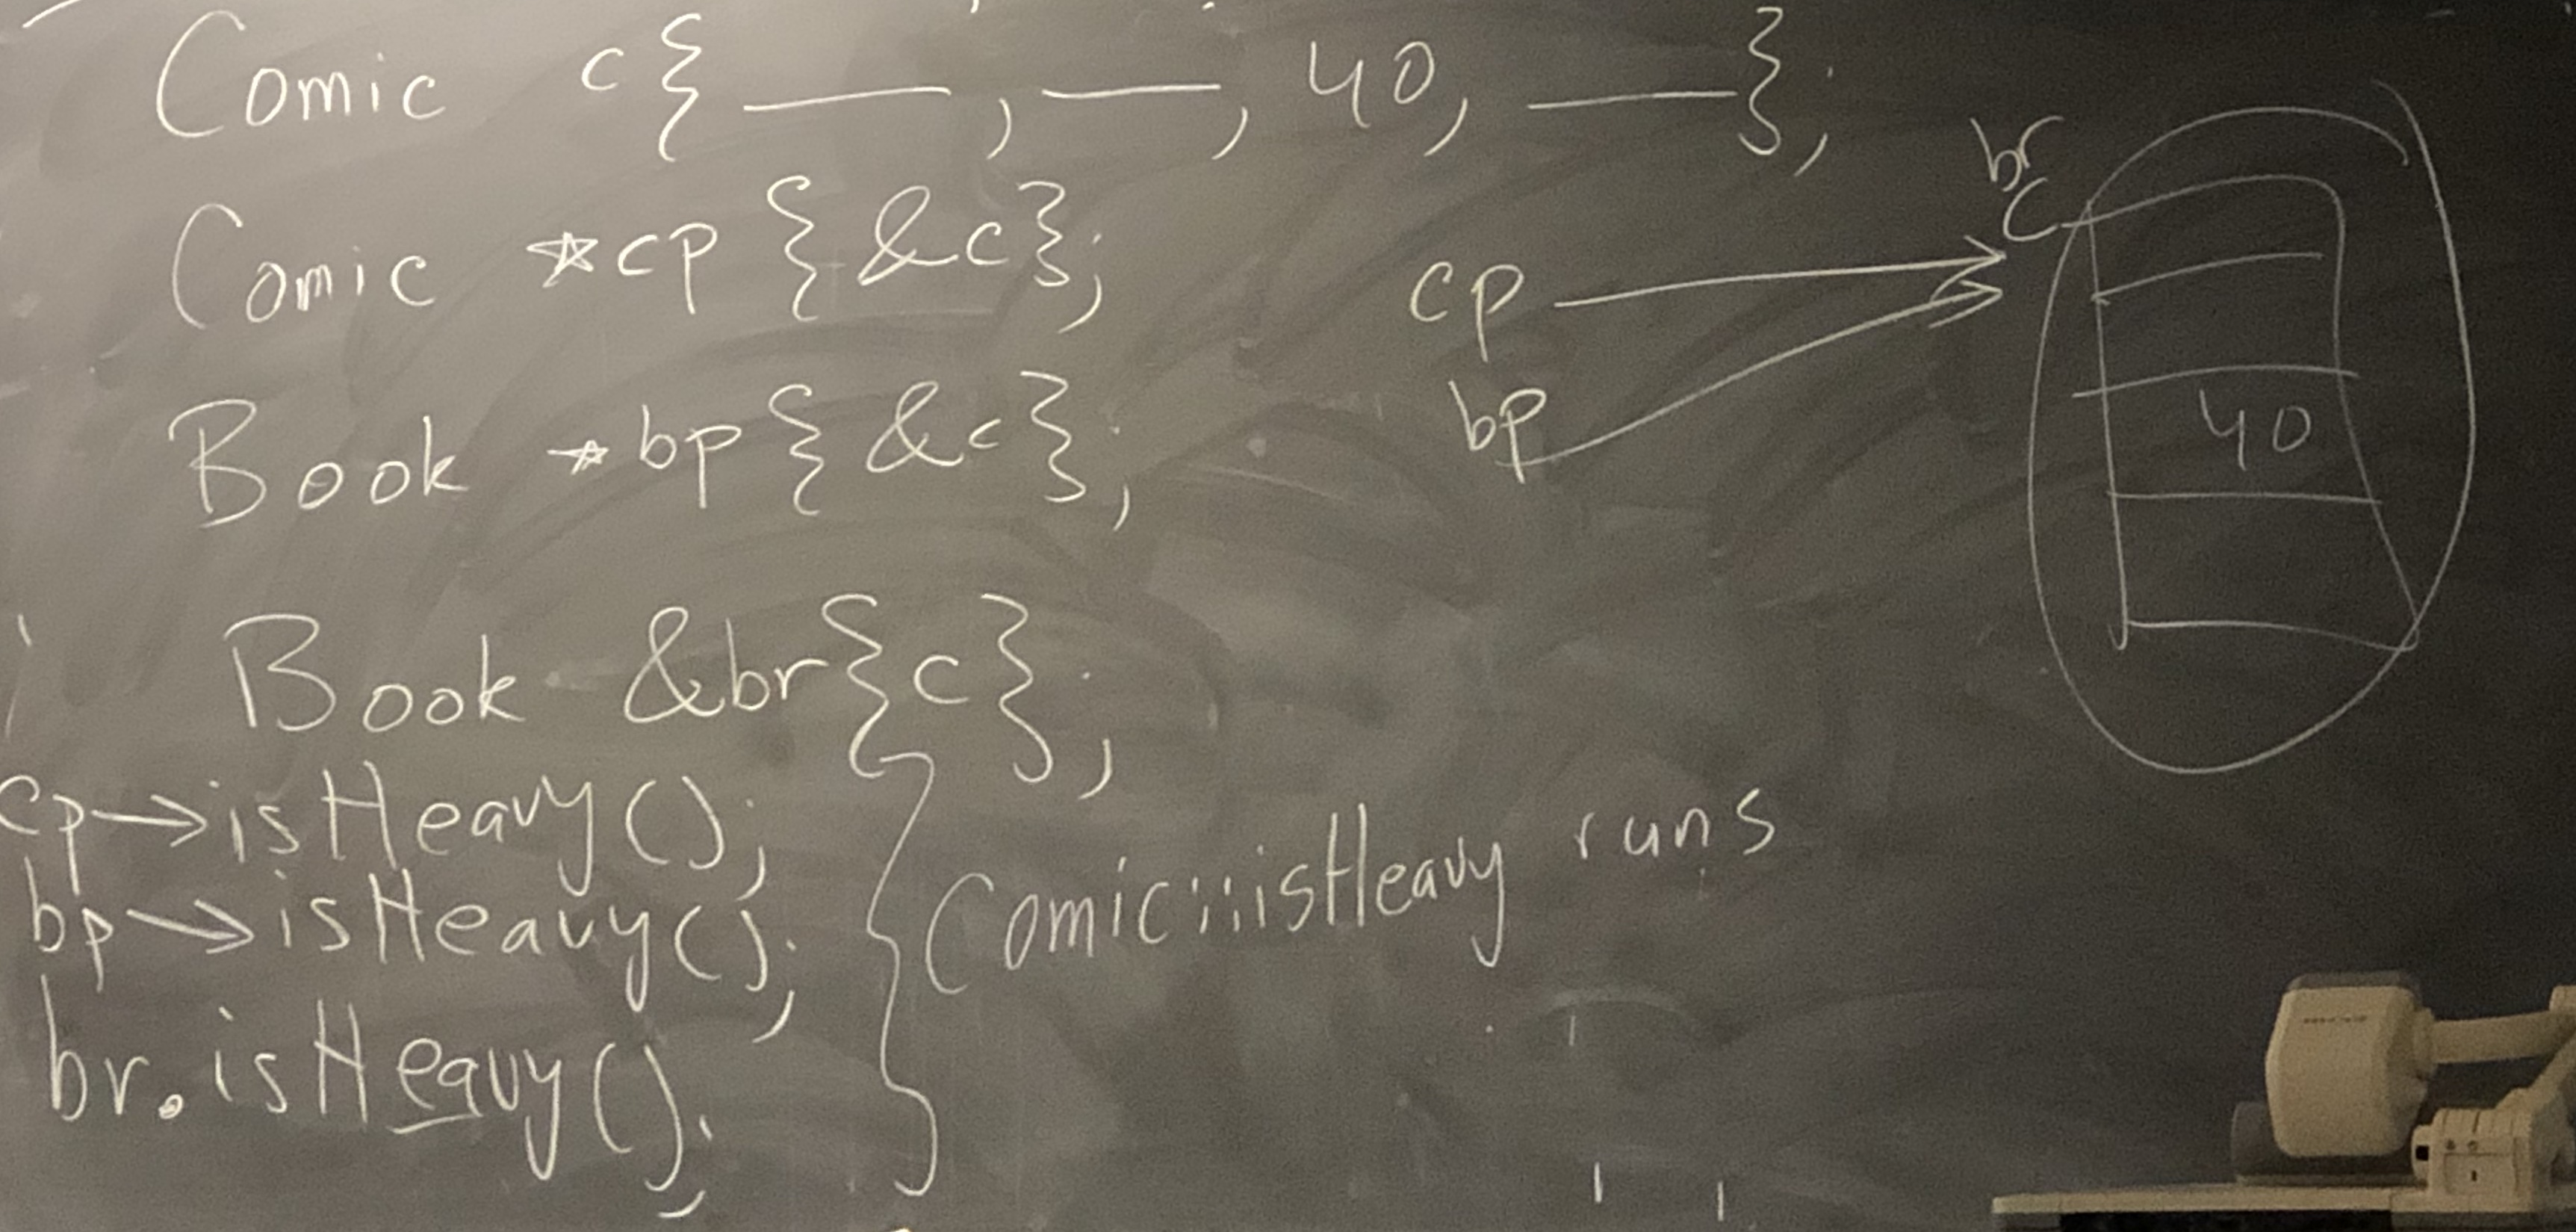 Comic c{ ___, ___, 40, ___};
Comic *cp {&c};
Book *bp{&c};
Book &br{c};
cp→isHeavy();
bp→isHeavy();
br.isHeavy();
Comic::isHeavy runs
cp
bp
br
c
40